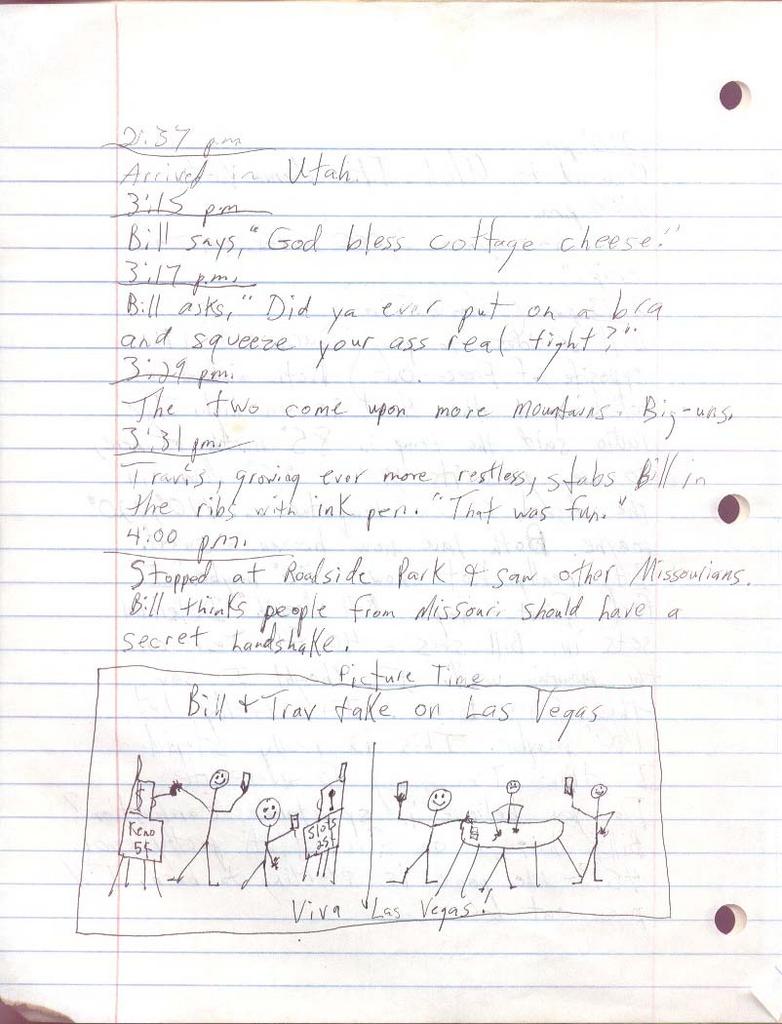 2:37 p.m
Arrived in Utah.
3:15 pm
Bill says, "God bless cottage cheese."
3:17 p.m.
Bill asks, "Did ya ever put on a bra
and squeeze your ass real tight?"
3:29 pm.
The two come upon more mountains. Big-uns.
3:31 pm.
Travis, growing ever more restless, stabs Bill in
the ribs with ink pen. "That was fun."
4:00 pm.
Stopped at Roadside Park & saw other Missourians.
Bill thinks people from Missouri should have a
secret handshake.
Picture Time
Bill & Trav take on Las Vegas
Keno
5¢
Slots
25¢
Viva Las Vegas!